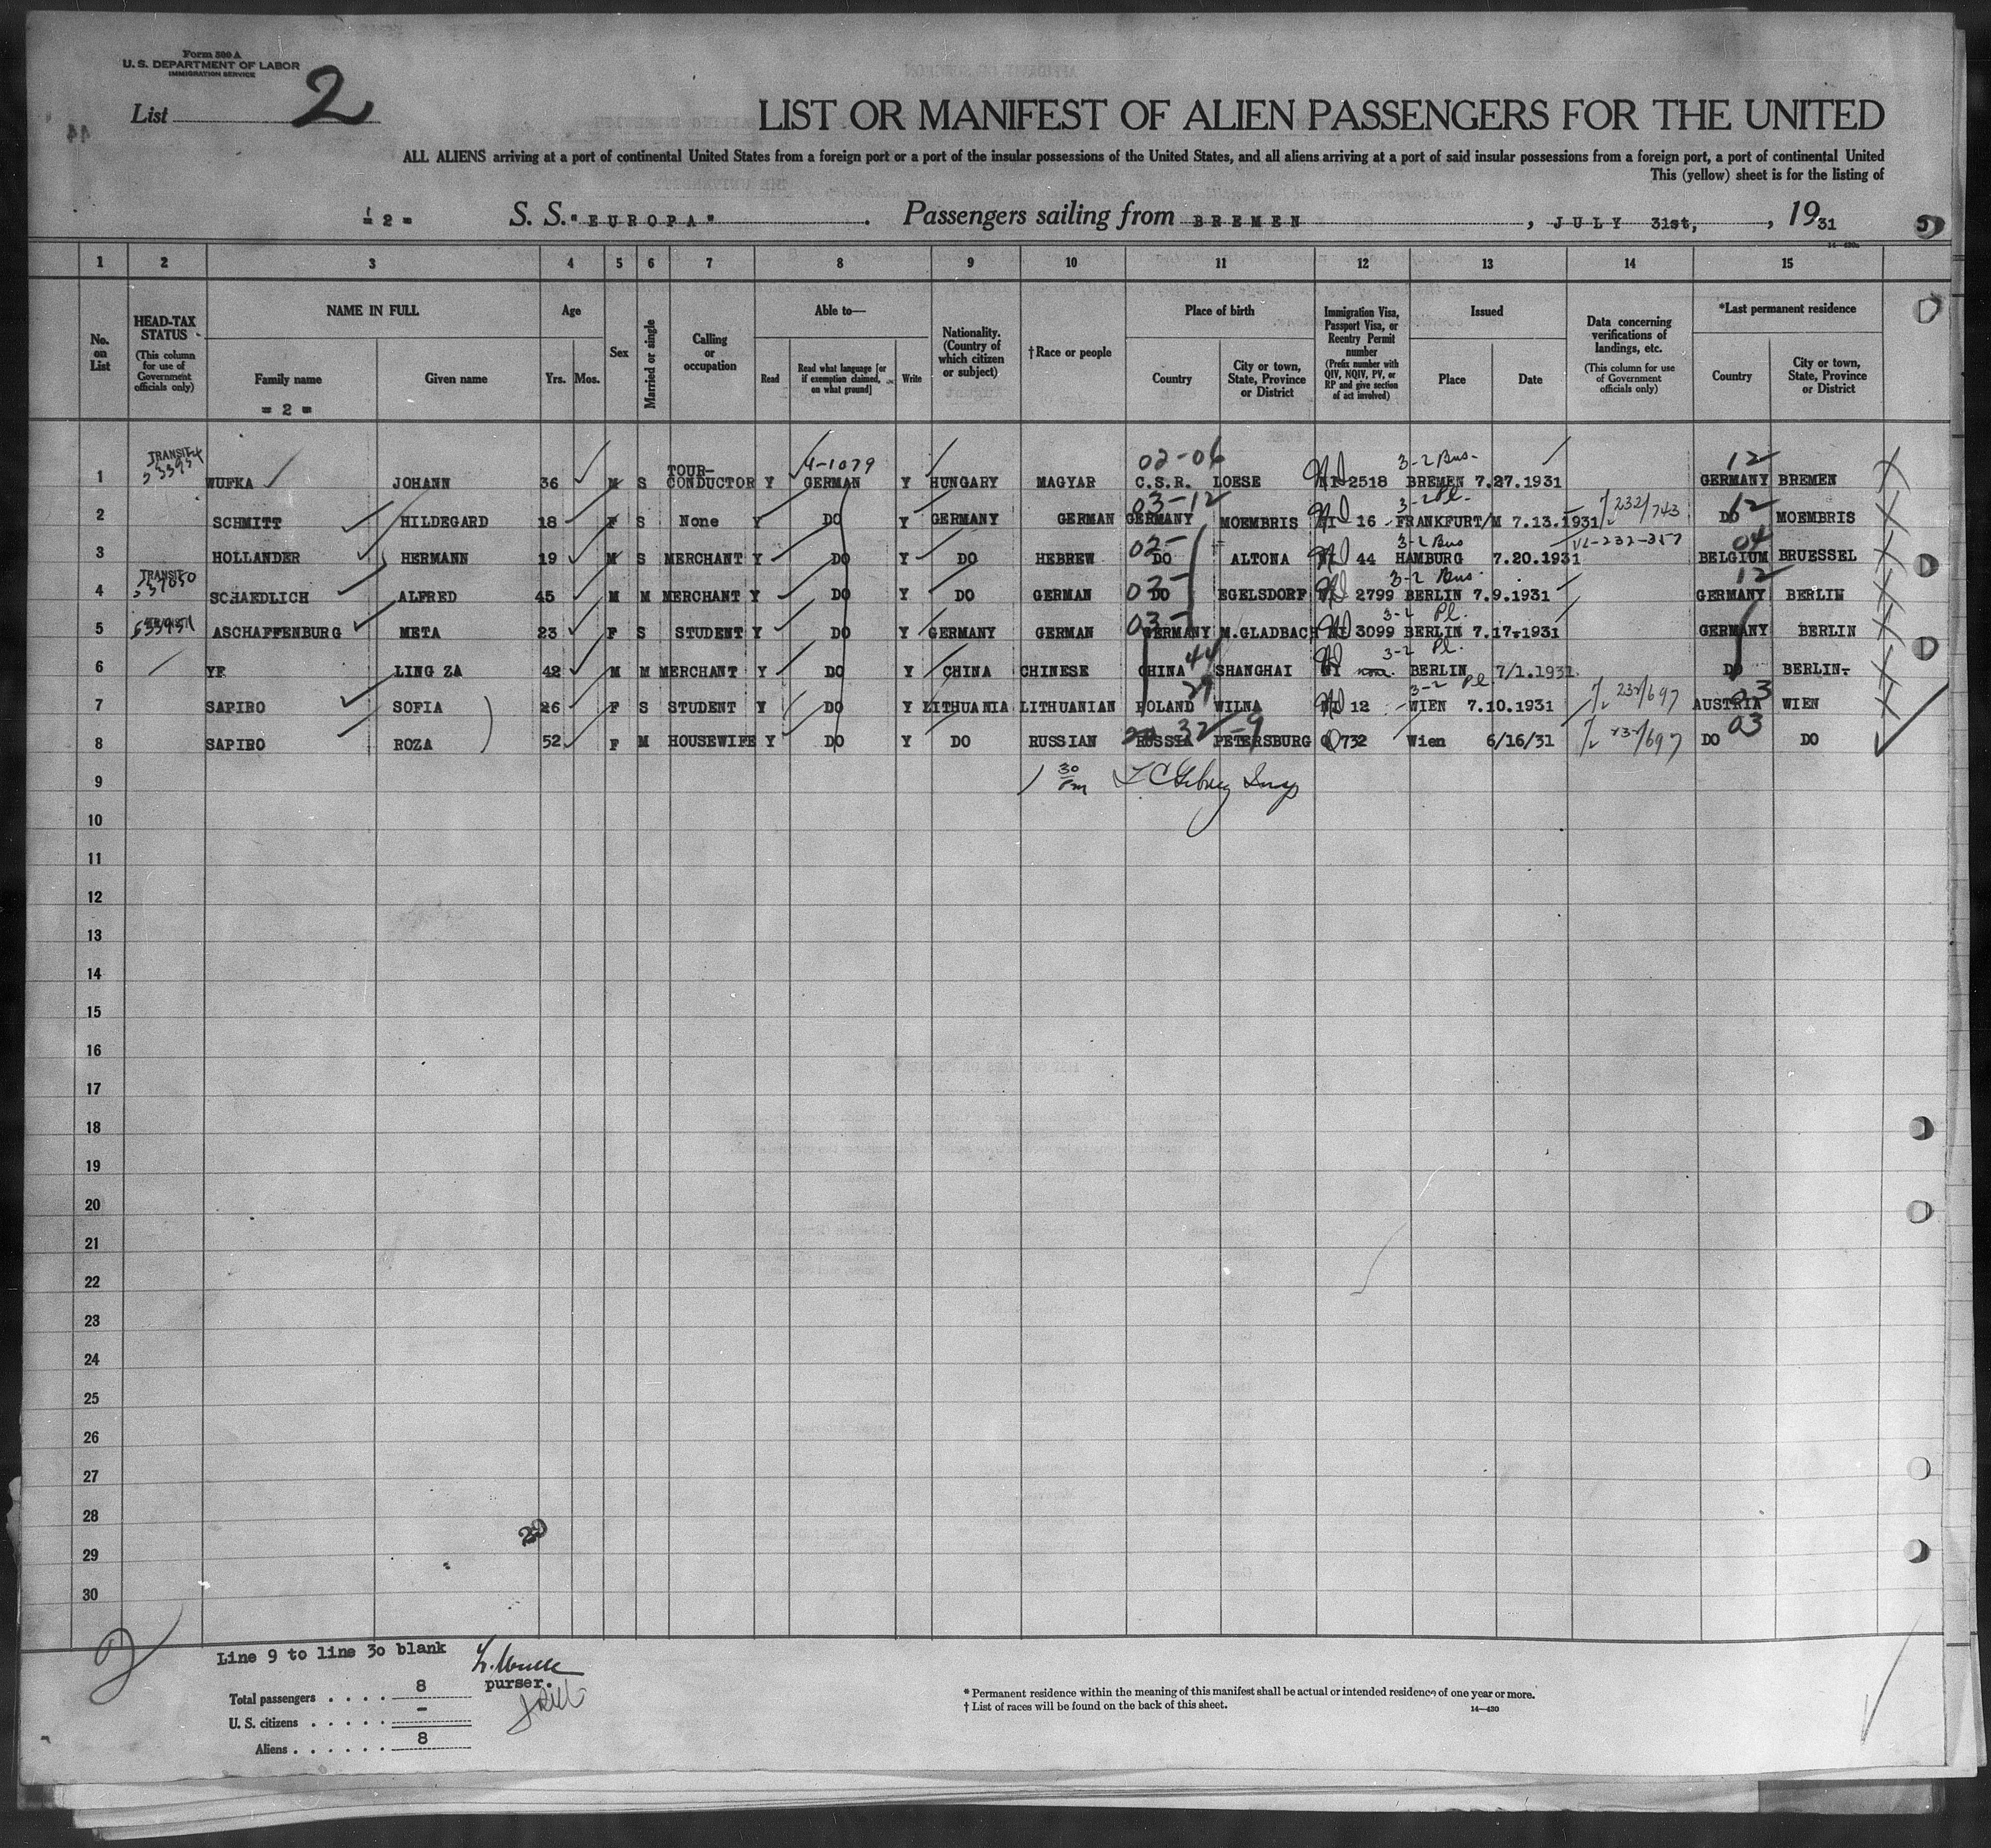 Form 500 A
U. S. DEPARTMENT OF LABOR
IMMIGRATION SERVICE
List 2
LIST OR MANIFEST OF ALIEN PASSENGERS FOR THE UNITED
ALL ALIENS arriving at a port of continental United States from a foreign port or a port of the insular possessions of the United States, and all aliens arriving at a port of said insular possessions from a foreign port, a port of continental United
This (yellow) sheet is for the listing of
= 2 = S. S. "EUROPA" . Passengers sailing from BREMEN , JULY 31st, , 1931
1 2 3 4 5 6 7 8 9 10 11 12 13 14 15
No. on List
HEAD-TAX STATUS (This column for use of Government officials only)
NAME IN FULL
Family name
= 2 =
Given name
Age
Yrs. Mos.
Sex
Married or single
Calling or occupation
Able to—
Read
Read what language [or if exemption claimed, on what ground]
Write
Nationality. (Country of which citizen or subject)
† Race or people
Place of birth
Country
City or town, State, Province or District
Immigration Visa, Passport Visa, or Reentry Permit number (Prefix number with QIV, NQIV, PV, or RP and give section of act involved)
Issued
Place
Date
Data concerning verifications of landings, etc. (This column for use of Government officials only)
*Last permanent residence
Country
City or town, State, Province or District
TRANSIT 4-1079 02-06 3-2 Bus- 12
1 WUFKA JOHANN 36 M S TOUR-CONDUCTOR Y GERMAN Y HUNGARY MAGYAR C.S.R. LOESE 2518 BREMEN 7.27.1931 GERMANY BREMEN
03-12 3-2 Pl. 12
2 SCHMITT HILDEGARD 18 F S None Y DO Y GERMANY GERMAN GERMANY MOEMBRIS 16 FRANKFURT/M 7.13.1931 232/743 DO MOEMBRIS
02- 3-2 Bus VL-232-357 04
3 HOLLANDER HERMANN 19 M S MERCHANT Y DO Y DO HEBREW DO ALTONA 44 HAMBURG 7.20.1931 BELGIUM BRUESSEL
TRANSIT 03- 3-2 Bus. 12
4 SCHAEDLICH ALFRED 45 M M MERCHANT Y DO Y DO GERMAN DO EGELSDORF 2799 BERLIN 7.9.1931 GERMANY BERLIN
03- 3-2 Pl.
5 ASCHAFFENBURG META 23 F S STUDENT Y DO Y GERMANY GERMAN GERMANY M.GLADBACH 3099 BERLIN 7.17.1931 GERMANY BERLIN
44 3-2 Pl.
6 YF LING ZA 42 M M MERCHANT Y DO Y CHINA CHINESE CHINA SHANGHAI BERLIN 7/1.1931. DO BERLIN.
29 3-2 Pl. 23
7 SAPIRO SOFIA 26 F S STUDENT Y DO Y LITHUANIA LITHUANIAN POLAND WILNA 12 WIEN 7.10.1931 232/697 AUSTRIA WIEN
32-9 03
8 SAPIRO ROZA 52 F M HOUSEWIFE Y DO Y DO RUSSIAN RUSSIA PETERSBURG Q 732 Wien 6/16/31 DO DO
9 1 30 Pm
10
11
12
13
14
15
16
17
18
19
20
21
22
23
24
25
26
27
28
29
30
Line 9 to line 30 blank
purser.
Total passengers . . . . 8
U. S. citizens . . . . . -
Aliens . . . . . . 8
* Permanent residence within the meaning of this manifest shall be actual or intended residence of one year or more.
† List of races will be found on the back of this sheet.
14—430